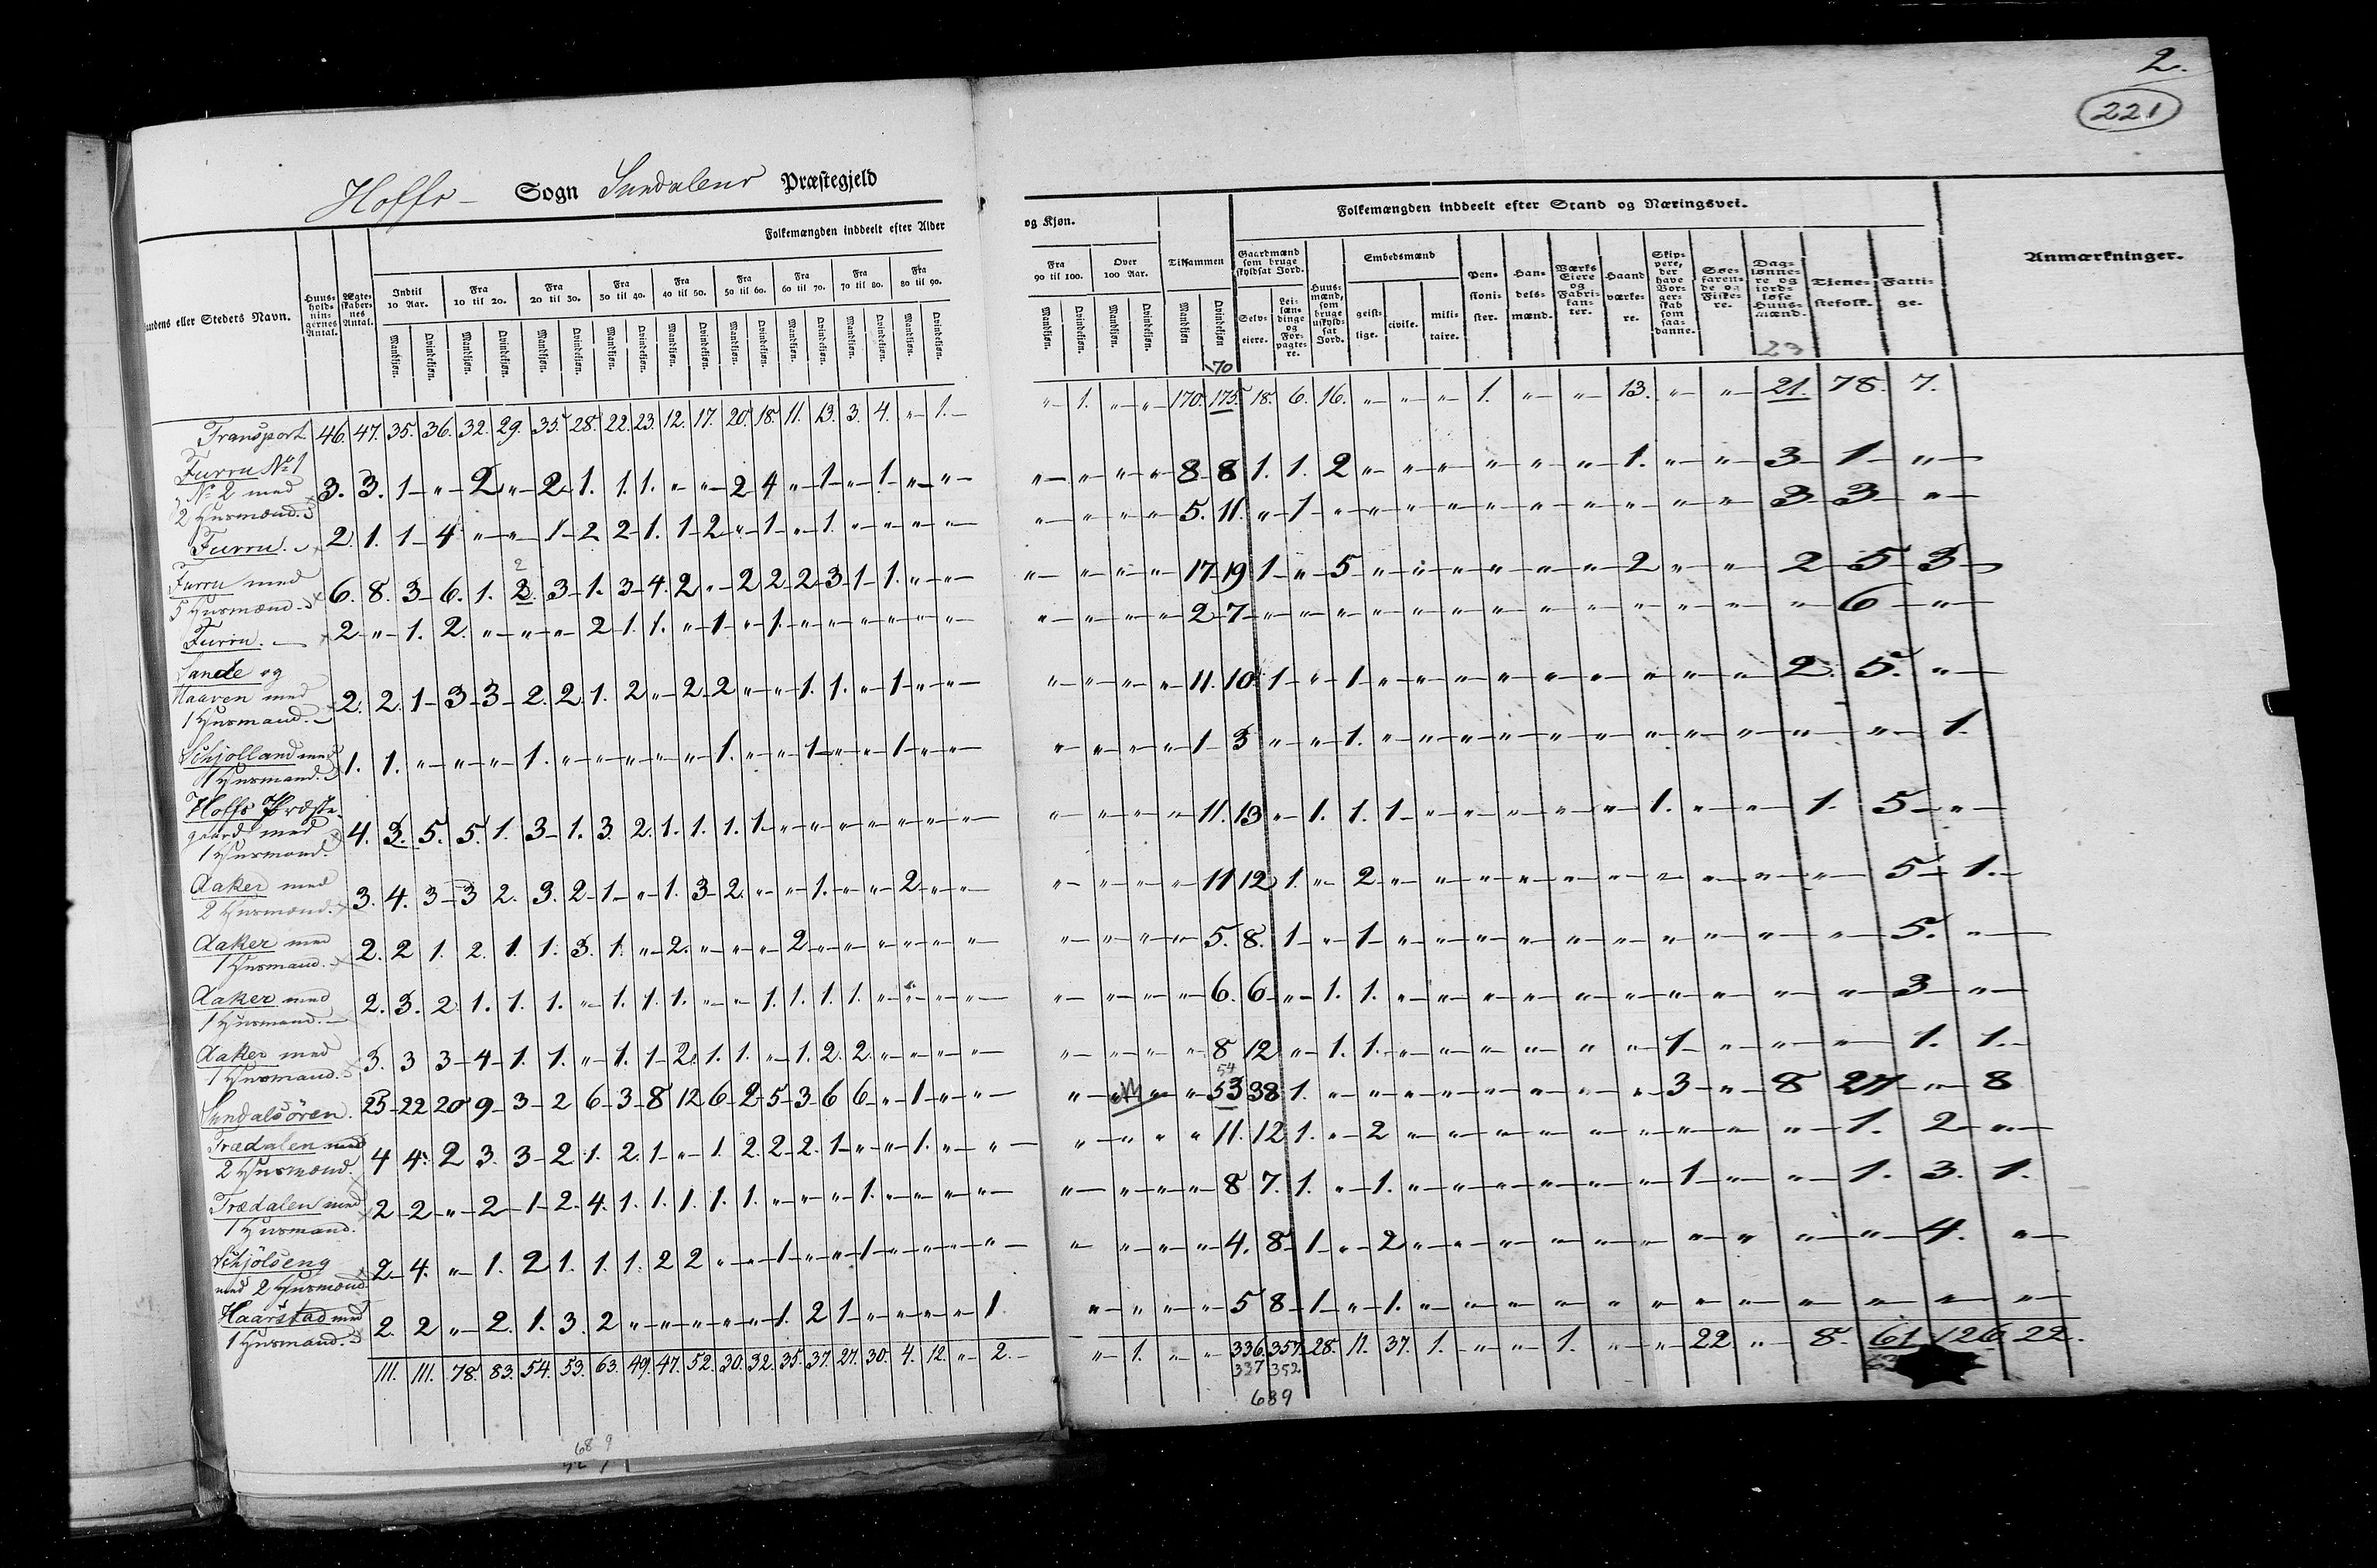 2.
221
Hoffs- Sogn Sundalens Præstegjeld
Folkemængden inddeelt efter Alder
og Kjøn.
Folkemængden inddeelt efter Stand og Næringsvei.
Anmærkninger.
andens eller Stedets Navn.
Huus-holdningernes Antal.
Ægteskabernes Antal.
Indtil 10 Aar.
Fra 10 til 20.
Fra 20 til 30.
Fra 30 til 40.
Fra 40 til 50.
Fra 50 til 60.
Fra 60 til 70.
Fra 70 til 80.
Fra 80 til 90.
Fra 90 til 100.
Over 100 Aar.
Tilsammen
Mandkjøn. Qvindekjøn.
Gaardmænd som bruge skyldsat Jord.
Selveiere.
Leilændinge og Forpagtere.
Huusmænd, som bruge uskyldsat Jord.
Embedsmænd
geistlige. civile. militaire.
Pensionister.
Handelsmænd.
Værks Eiere og Fabrikanter.
Haandværkere.
Skippere, der have Borgerskab som saadanne.
Søefarende og Fiskere.
Daglønnere og jordløse Huusmænd.
Tjenestefolk.
Fattige.
70
23
Transport. 46. 47. 35. 36. 32. 29. 35. 28. 22. 23. 12. 17. 20. 18. 11. 13. 3. 4. „ 1. „ 1. „ „ 170. 175. 18. 6. 16. „ „ „ 1. „ „ 13. „ „ 21. 78. 7.
Furru No 1
„ No 2 med
2 Husmænd. 3. 3. 1 „ 2 „ 2 1. 1. 1. „ „ 2 4 „ 1 „ 1 „ „ „ „ „ „ 8 8 1. 1. 2 „ „ „ „ „ „ 1. „ „ 3 1 „
Furru. 2. 1. 1 4 „ „ 1 2 2 1. 1 2 „ 1 „ 1. „ „ „ „ „ „ „ „ 5. 11. „ 1 „ „ „ „ „ „ „ „ „ „ 3 3 „
2
Furru med
5 Husmænd 6. 8. 3 6. 1. 3. 3 1. 3 4. 2 „ 2 2 2 3 1 1. „ „ „ „ „ „ 17 19 1 „ 5 „ „ „ „ „ „ 2 „ „ 2 5 3
Furru. 2 „ 1. 2. „ „ „ 2 1. 1. „ 1 „ 1. „ „ „ „ „ „ „ „ „ „ 2 7 „ „ „ „ „ „ „ „ „ „ „ „ „ 6 „
Sande og
Haaven med
1 Husmand. 2. 2. 1 3 3 2. 2. 1. 2 „ 2 2 „ „ 1. 1. „ 1 „ „ „ „ „ „ 11. 10. 1 „ 1 „ „ „ „ „ „ „ „ „ 2. 5. „
Schjolland med
1 Husmand. 1. 1. „ „ „ 1. „ „ „ „ „ 1. „ „ 1 „ „ 1 „ „ „ „ „ „ 1 3 „ „ 1. „ „ „ „ „ „ „ „ „ „ „ 1.
Hoffs Præste-
gaard med
1 Husmand. 4. 3. 5. 5. 1. 3 1. 3. 2. 1. 1. 1. 1 „ „ „ „ „ „ „ „ „ „ „ 11. 13 „ 1. 1. 1 „ „ „ „ „ 1. „ „ 1. 5 „
Aaker med
2 Husmænd. 3. 4. 3 3 2. 3. 2 1 „ 1. 3 2. „ „ 1. „ „ 2 „ „ „ „ „ „ 11 12 1. „ 2 „ „ „ „ „ „ „ „ „ „ 5 1.
Aaker med
1 Husmand. 2. 2 1. 2. 1. 1. 3. 1. „ 2. „ „ „ 2 „ „ „ „ „ „ „ „ „ „ 5. 8. 1 „ 1 „ „ „ „ „ „ „ „ „ „ 5. „
Aaker med
1 Husmand. 2. 3. 2 1. 1. 1. „ 1. 1. 1. „ „ 1. 1. 1. 1. „ „ „ „ „ „ „ „ 6. 6 „ 1. 1. „ „ „ „ „ „ „ „ „ „ 3 „
Aaker med
1 Husmand. 3. 3 3 4 1. 1. „ 1. 1 2. 1. 1. „ 1. 2. 2 „ „ „ „ „ „ „ „ 8 12 „ 1. 1. „ „ „ „ „ „ 1 „ „ „ 1. 1.
54
Sundalsören. 23 22 20 9 3 2 6 3 8 12 6 2 5 3 6 6 „ 1 „ „ „ „ „ „ 53 38 1. „ „ „ „ „ „ „ „ 3 „ 8 27 „ 8
Trædalen med
2 Husmænd. 4 4. 2 3. 3 2 1. 2. 1 „ 1. 2. 2 2. 1 „ „ 1. „ „ „ „ „ „ 11. 12 1. „ 2 „ „ „ „ „ „ „ „ „ 1. 2 „
Trædalen med
1 Husmand. 2 2 „ 2 1 2. 4. 1. 1. 1. 1. 1. „ „ „ 1. „ „ „ „ „ „ „ „ 8 7. 1. „ 1. „ „ „ „ „ „ 1 „ „ 1. 3. 1.
Schjölseng
med 2 Husmænd 2 4. „ 1. 2 1. 1. 1. 2 2 „ „ 1 „ „ 1 „ „ „ „ „ „ „ „ 4. 8 1 „ 2 „ „ „ „ „ „ „ „ „ „ 4. „
Haarstad med
1 Husmand. 2. 2 „ 2. 1. 3. 2 „ „ „ „ „ 1. 2 1 „ „ „ „ 1. „ „ „ „ 5 8 1 „ 1. „ „ „ „ „ „ „ „ „ „ „ „
111. 111. 78. 83. 54. 53. 63. 49. 47. 52. 30. 32. 35. 37. 27. 30. 4. 12. „ 2. „ 1. „ „ 336. 357. 28. 11. 37. 1. „ „ 1. „ „ 22. „ 8. 61 126 22.
337 352
689
689